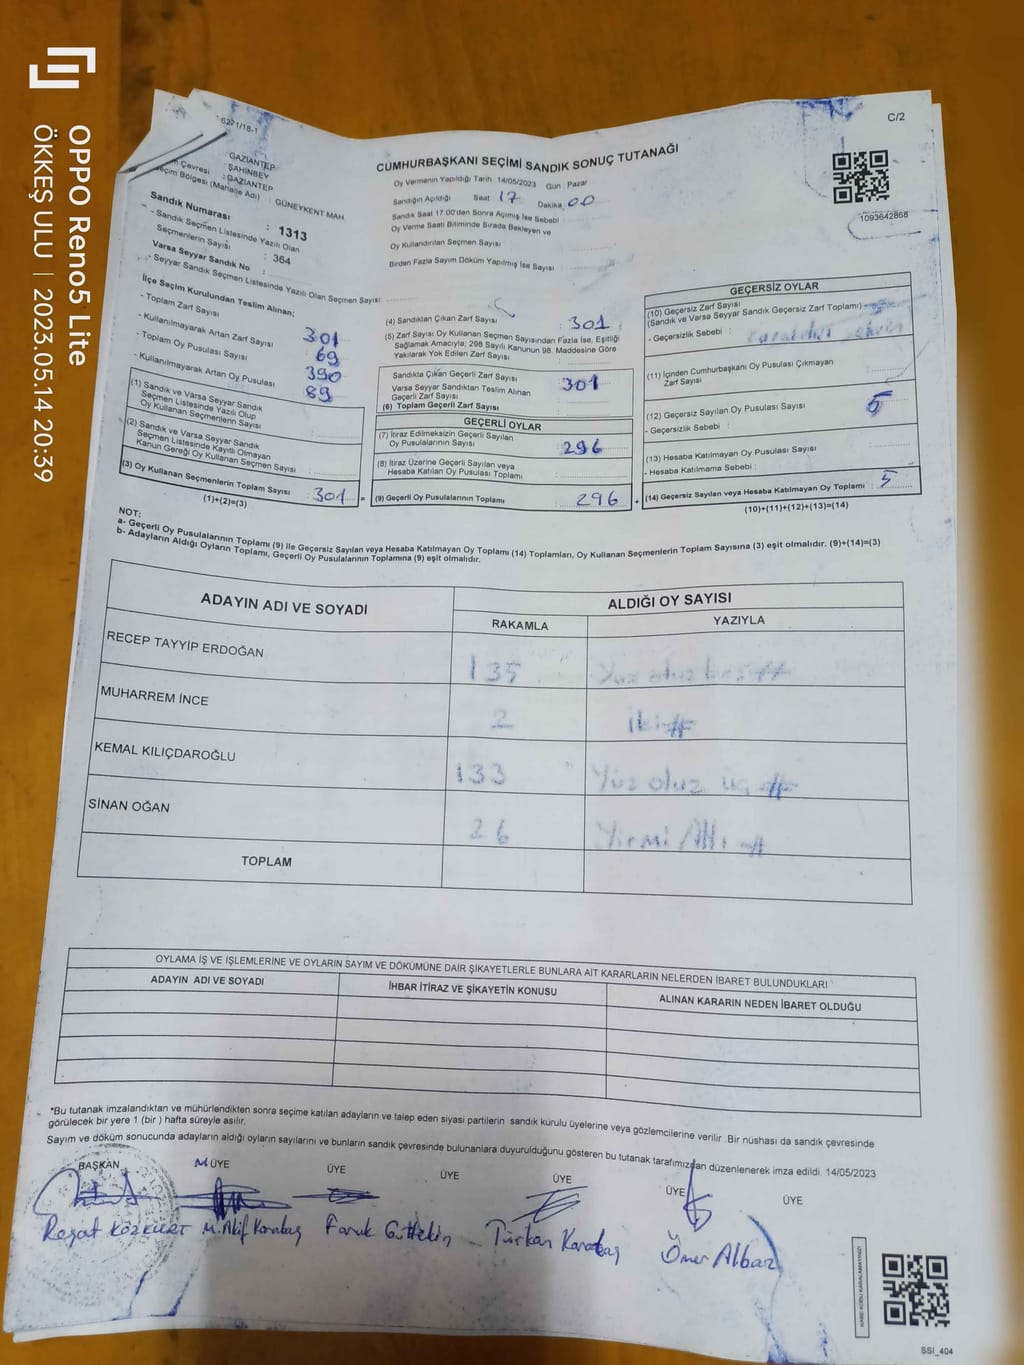 OPPO Reno5 Lite
ÖKKEŞ ULU | 2023.05.14 20:39
6271/18-1
C/2
GAZİANTEP
ŞAHİNBEY
Çevresi : GAZİANTEP
Seçim Bölgesi (Mahalle Adı) : GÜNEYKENT MAH.
Sandık Numarası : 1313
- Sandık Seçmen Listesinde Yazılı Olan
Seçmenlerin Sayısı : 364
Varsa Seyyar Sandık No :
- Seyyar Sandık Seçmen Listesinde Yazılı Olan Seçmen Sayısı:
CUMHURBAŞKANI SEÇİMİ SANDIK SONUÇ TUTANAĞI
Oy Vermenin Yapıldığı Tarih 14/05/2023 Gün Pazar
Sandığın Açıldığı Saat 17 Dakika 00
Sandık Saat 17:00'den Sonra Açılmış İse Sebebi
Oy Verme Saati Bitiminde Sırada Bekleyen ve
Oy Kullandırılan Seçmen Sayısı
Birden Fazla Sayım Döküm Yapılmış İse Sayısı
1093642868
İlçe Seçim Kurulundan Teslim Alınan;
- Toplam Zarf Sayısı
- Kullanılmayarak Artan Zarf Sayısı 301
- Toplam Oy Pusulası Sayısı 69
- Kullanılmayarak Artan Oy Pusulası 390
89
(1) Sandık ve Varsa Seyyar Sandık
Seçmen Listesinde Yazılı Olup
Oy Kullanan Seçmenlerin Sayısı
(2) Sandık ve Varsa Seyyar Sandık
Seçmen Listesinde Kayıtlı Olmayan
Kanun Gereği Oy Kullanan Seçmen Sayısı
(3) Oy Kullanan Seçmenlerin Toplam Sayısı 301
(1)+(2)=(3)
(4) Sandıktan Çıkan Zarf Sayısı 301
(5) Zarf Sayısı Oy Kullanan Seçmen Sayısından Fazla İse, Eşitliği
Sağlamak Amacıyla; 298 Sayılı Kanunun 98. Maddesine Göre
Yakılarak Yok Edilen Zarf Sayısı
Sandıkta Çıkan Geçerli Zarf Sayısı
Varsa Seyyar Sandıktan Teslim Alınan 301
Geçerli Zarf Sayısı
(6) Toplam Geçerli Zarf Sayısı
GEÇERLİ OYLAR
(7) İtiraz Edilmeksizin Geçerli Sayılan
Oy Pusulalarının Sayısı 296
(8) İtiraz Üzerine Geçerli Sayılan veya
Hesaba Katılan Oy Pusulası Toplamı
= (9) Geçerli Oy Pusulalarının Toplamı 296
GEÇERSİZ OYLAR
(10) Geçersiz Zarf Sayısı
(Sandık ve Varsa Seyyar Sandık Geçersiz Zarf Toplamı)
- Geçersizlik Sebebi :
(11) İçinden Cumhurbaşkanı Oy Pusulası Çıkmayan
Zarf Sayısı
(12) Geçersiz Sayılan Oy Pusulası Sayısı 5
- Geçersizlik Sebebi :
(13) Hesaba Katılmayan Oy Pusulası Sayısı
- Hesaba Katılmama Sebebi :
+ (14) Geçersiz Sayılan veya Hesaba Katılmayan Oy Toplamı : 5
(10)+(11)+(12)+(13)=(14)
NOT:
a- Geçerli Oy Pusulalarının Toplamı (9) ile Geçersiz Sayılan veya Hesaba Katılmayan Oy Toplamı (14) Toplamları, Oy Kullanan Seçmenlerin Toplam Sayısına (3) eşit olmalıdır. (9)+(14)=(3)
b- Adayların Aldığı Oyların Toplamı, Geçerli Oy Pusulalarının Toplamına (9) eşit olmalıdır.
ADAYIN ADI VE SOYADI ALDIĞI OY SAYISI
RAKAMLA YAZIYLA
RECEP TAYYİP ERDOĞAN 135 Yüz otuz beş #
MUHARREM İNCE 2 iki #
KEMAL KILIÇDAROĞLU 133 Yüz otuz üç #
SİNAN OĞAN 26 Yirmi Altı #
TOPLAM
OYLAMA İŞ VE İŞLEMLERİNE VE OYLARIN SAYIM VE DÖKÜMÜNE DAİR ŞİKAYETLERLE BUNLARA AİT KARARLARIN NELERDEN İBARET BULUNDUKLARI
ADAYIN ADI VE SOYADI İHBAR İTİRAZ VE ŞİKAYETİN KONUSU ALINAN KARARIN NEDEN İBARET OLDUĞU
*Bu tutanak imzalandıktan ve mühürlendikten sonra seçime katılan adayların ve talep eden siyasi partilerin sandık kurulu üyelerine veya gözlemcilerine verilir .Bir nüshası da sandık çevresinde
görülecek bir yere 1 (bir ) hafta süreyle asılır.
Sayım ve döküm sonucunda adayların aldığı oyların sayılarını ve bunların sandık çevresinde bulunanlara duyurulduğunu gösteren bu tutanak tarafımızdan düzenlenerek imza edildi. 14/05/2023
BAŞKAN M ÜYE ÜYE ÜYE ÜYE ÜYE ÜYE
Reşat KÖZKURT M. Akif Karataş Faruk Gültekin Türkan Karataş Ömer Albaz
KARE KODU KARALAMAYINIZ!
SSI_404